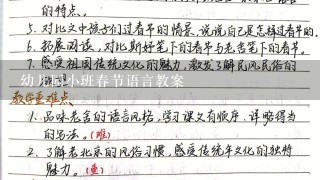 的特点。
5. 对比文中孩子们过春节的情景,说说自己是怎样过春节的。
6. 拓展阅读,对比斯妤笔下的春节与老舍笔下的春节。
7. 感受祖国传统文化的魅力,激发了解民风民俗的
幼儿园小班春节语言教案
教学重难点
1. 品味老舍的语言风格,学习课文有顺序、详略得当
的写法。(难)
2. 了解老北京的风俗习惯,感受传统年文化的独特
魅力。(重)